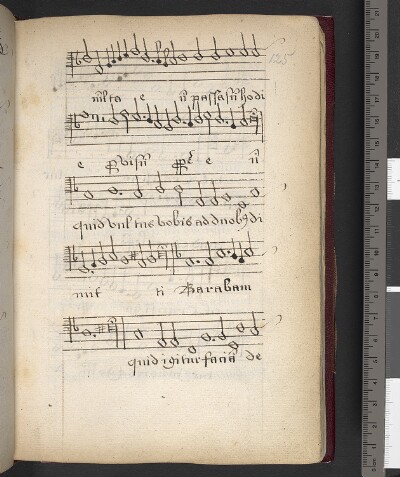 125
m̃ta e ũ passasũ hodi
e ꝑ visũ e ũ
quid vultus vobis ad duobꝫ di
mit ti Barabam
quid igitur faciã de